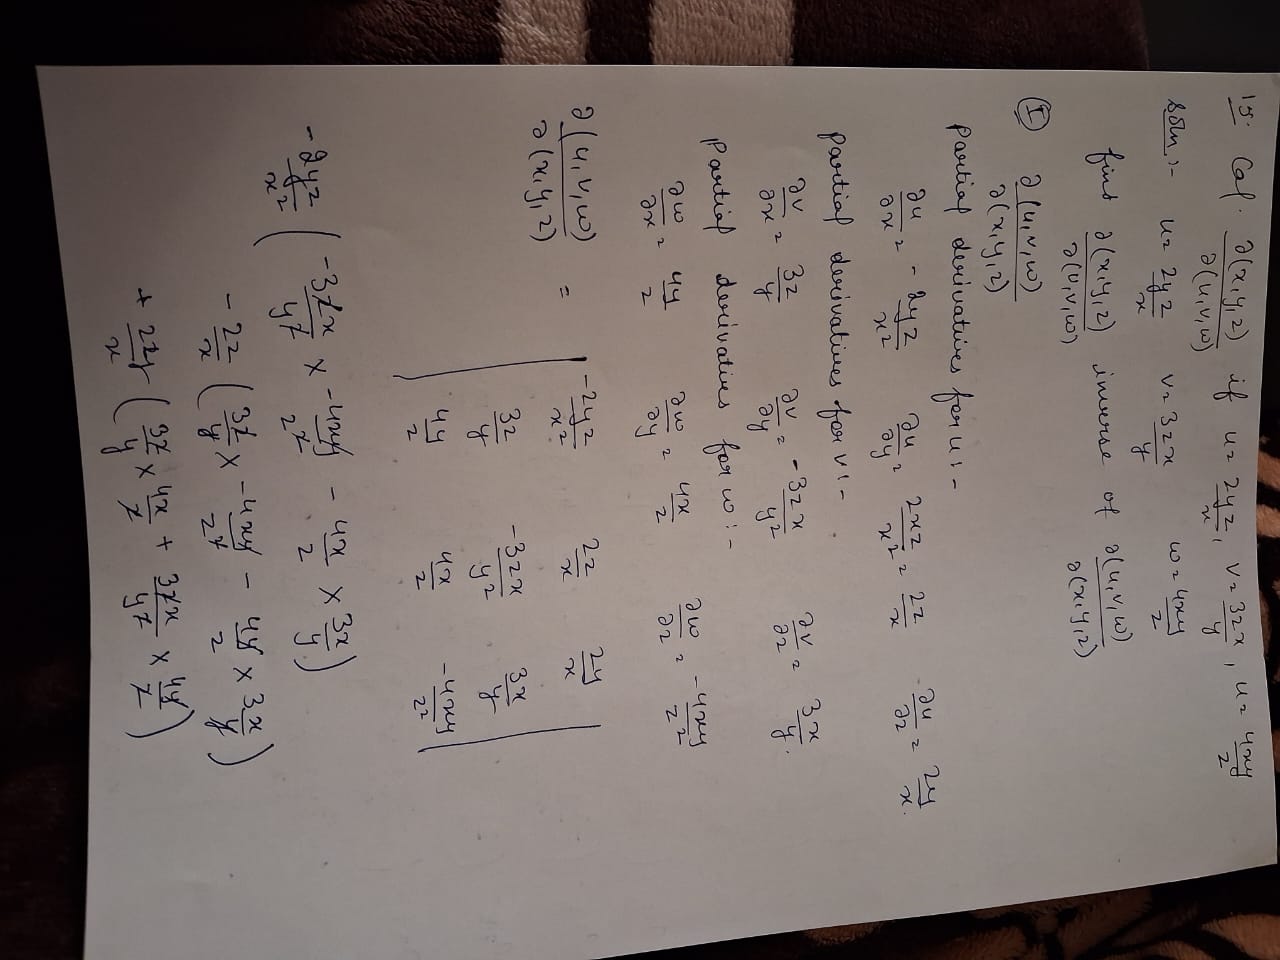 15. Cal. ∂(x,y,z)/∂(u,v,w) if u = 2yz/x, v = 3zx/y, u = 4xy/z
Soln :- u = 2yz/x v = 3zx/y w = 4xy/z
find ∂(x,y,z)/∂(u,v,w) inverse of ∂(u,v,w)/∂(x,y,z)
(I) ∂(u,v,w)/∂(x,y,z)
Partial derivatives for u :-
∂u/∂x = -2yz/x² ∂u/∂y = 2xz/x² = 2z/x ∂u/∂z = 2y/x.
partial derivatives for v :-
∂v/∂x = 3z/y ∂v/∂y = -3zx/y² ∂v/∂z = 3x/y.
Partial derivatives for w :-
∂w/∂x = 4y/z ∂w/∂y = 4x/z ∂w/∂z = -4xy/z²
∂(u,v,w)/∂(x,y,z) = | -2yz/x² 2z/x 2y/x |
| 3z/y -3zx/y² 3x/y |
| 4y/z 4x/z -4xy/z² |
-2yz/x² ( -3zx/y² × -4xy/z² - 4x/z × 3x/y )
- 2z/x ( 3z/y × -4xy/z² - 4y/z × 3x/y )
+ 2y/x ( 3z/y × 4x/z + 3zx/y² × 4y/z )